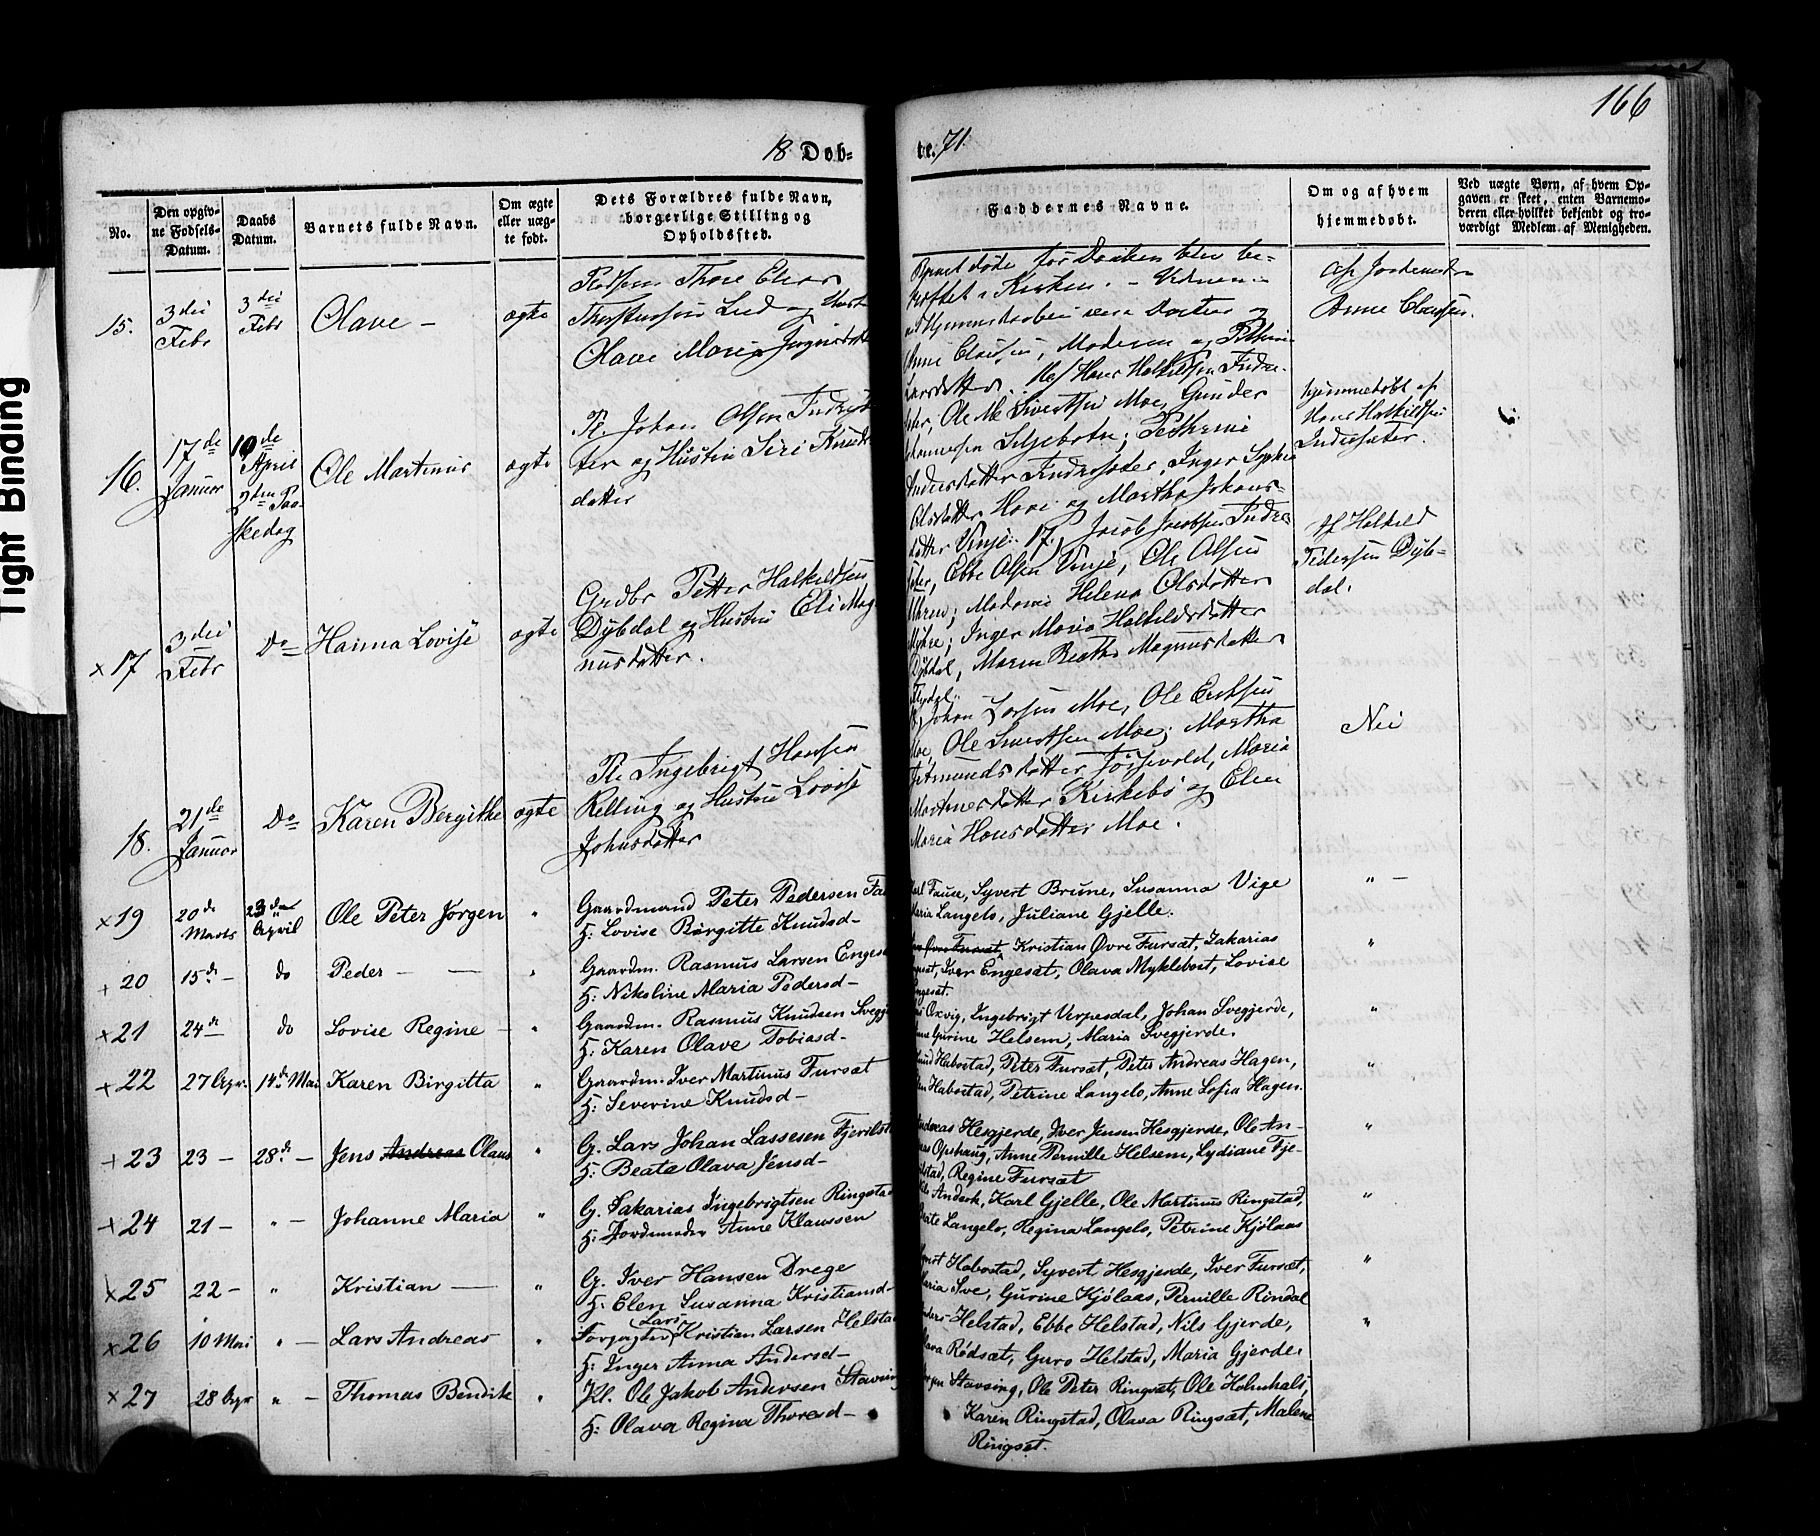 166
18 Døb-
te. 71.
No.
Den opgiv-
ne Fødsels-
Datum.
Daabs
Datum.
Barnets fulde Navn.
Om ægte
eller uæg-
te født.
Dets Forældres fulde Navn,
borgerlige Stilling og
Opholdssted.
Faddernes Navne.
Om og af hvem
hjemmedøbt.
Ved uægte Børn, af hvem Op-
gaven er skeet, enten Barnemo-
deren eller hvilket bekjendt og tro-
værdigt Medlem af Menigheden.
15.
3die
Febr
3die
Febr
Olave –
ægte
Thore Elias
Lied og
Olave Maria Jørgensdatter
Barnet døde før Daaben blev be-
kræftet i Kirken. –
Anne Clausen, Moderen og
af Jordemoder
Anne Clausen.
16.
17de
Januar
10de
April
2den Paa-
skedag
Ole Martinus
ægte
Johan Olsen
ter og Hustru Siri Knuds
datter
Hans Halkildsen Indre-
Ole Sivertsen Moe, Gunder
Pethrine
Andersdatter Indresæter, Inger Sophie
Olsdatter Hovi og Martha Johans-
datter Vinje.
hjemmedøbt af
Hans Halkildsen
Indresæter.
x 17
3die
Febr
Do
Hanna Lovise
ægte
Grdbr Petter Halkildsen
Dybdal og Hustru Eli Mag-
nusdatter.
17. Jacob Jacobsen Indre
Ebbe Olsen Vinje, Ole Olsen
Madame Helena Olsdatter
Inger Maria Halkildsdatter
Dybdal, Maren Beathe Magnusdatter
Af Halkild
Pedersen Dybe-
dal.
18.
21de
Januar
Do
Karen Bergithe
ægte
Ingebrigt Hansen
Relling og Hustru Lovise
Johnsdatter
Johan Larsen Moe, Ole Eriksen
Moe, Ole Sivertsen Moe; Martha
Maria
Martinesdatter Kirkebø og Elen
Maria Hansdatter Moe.
Nei
x 19
20de
Marts
23de
April
Ole Peter Jørgen
"
Gaardmand Peter Pedersen
H: Lovise Birgitte Knudsd–
Karl Fause, Syvert Brune, Susanna Vige
Maria Langelo, Juliane Gjelle.
" –
+ 20
15de –
do
Peder –
"
Gaardm. Rasmus Larsen
H: Nikoline Maria Pedersd–
Kristian Øvre Fursæt, Zakarias
Iver Engeset, Olava Myklebost, Lovise
Engeset.
"
x 21
24de
do
Lovise Regine –
"
Gaardm. Rasmus Knudsen
H: Karen Olave Tobiasd–
Oxvig, Ingebrigt Verpesdal, Johan Svegjerde,
Gurine Helsem, Maria Svegjerde.
"
+ 22
27 Apr.
14de Mai
Karen Birgitta
"
Gaardm. Iver Martinus Fursæt
H: Severine Knudsd–
Habostad, Peter Fursæt, Peter Andreas Hagen,
Habostad, Petrine Langelo, Anne Sofia Hagen.
"
+ 23
23 –
28de –
Jens Andreas Olaus
"
G. Lars Johan Lassesen
H: Beata Olava Jensd–
Andreas Hesgjerde, Iver Jensen Hesgjerde, Ole An-
Opshaug, Anne Pernille Helsem, Lydiane Fje-
Regine Fursæt
"
+ 24
21 –
" –
Johanne Maria
"
G. Sakarias Ingebrigtsen Ringstad
H: Jordmoder Anne Klaussen
Karl Gjelle, Ole Martinus Ringstad,
Langelo, Regina Langelo, Petrine Kjølaas
"
x 25
22 –
"
Kristian –
"
G. Iver Hansen Drege
H: Elen Susanna Kristiansd–
Habostad, Syvert Hesgjerde, Iver Fursæt,
Maria Sve, Gurine Kjølaas, Pernille Rindal
"
x 26
10 Mai
" –
Lars Andreas
"
Lars
Forpagter Kristian Larsen Helstad
H: Inger Anna Andersd–
Helstad, Ebbe Helstad, Nils Gjerde,
Rødsæt, Guro Helstad, Maria Gjerde.
"
x 27
28 Apr
" –
Thomas Bendik
"
Kl. Ole Jakob Andersen Stavsing
H: Olava Regina Thoresd–
Stavsing, Ole Peter Ringset, Ole Holmhals,
Karen Ringstad, Olava Ringsæt, Malene
Ringset.
Tight Binding